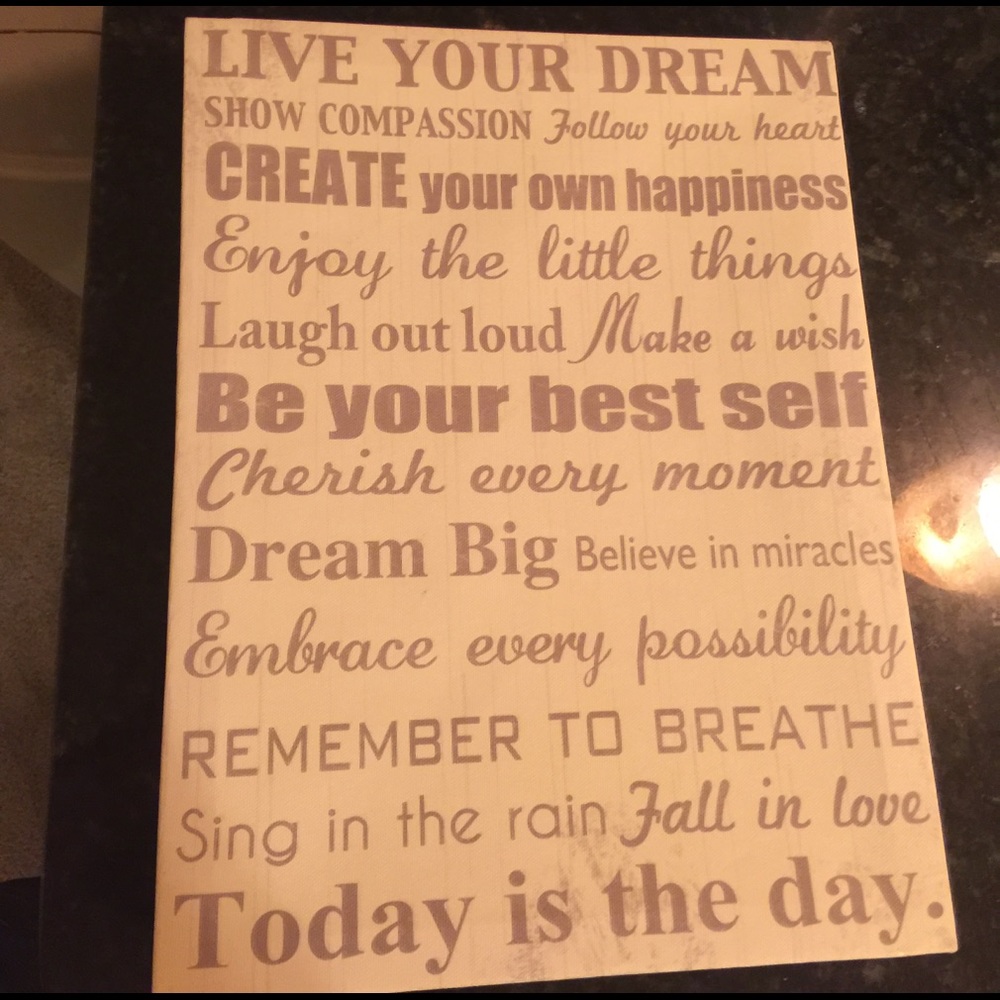 LIVE YOUR DREAM
SHOW COMPASSION Follow your heart
CREATE your own happiness
Enjoy the little things
Laugh out loud Make a wish
Be your best self
Cherish every moment
Dream Big Believe in miracles
Embrace every possibility
REMEMBER TO BREATHE
Sing in the rain Fall in love
Today is the day.